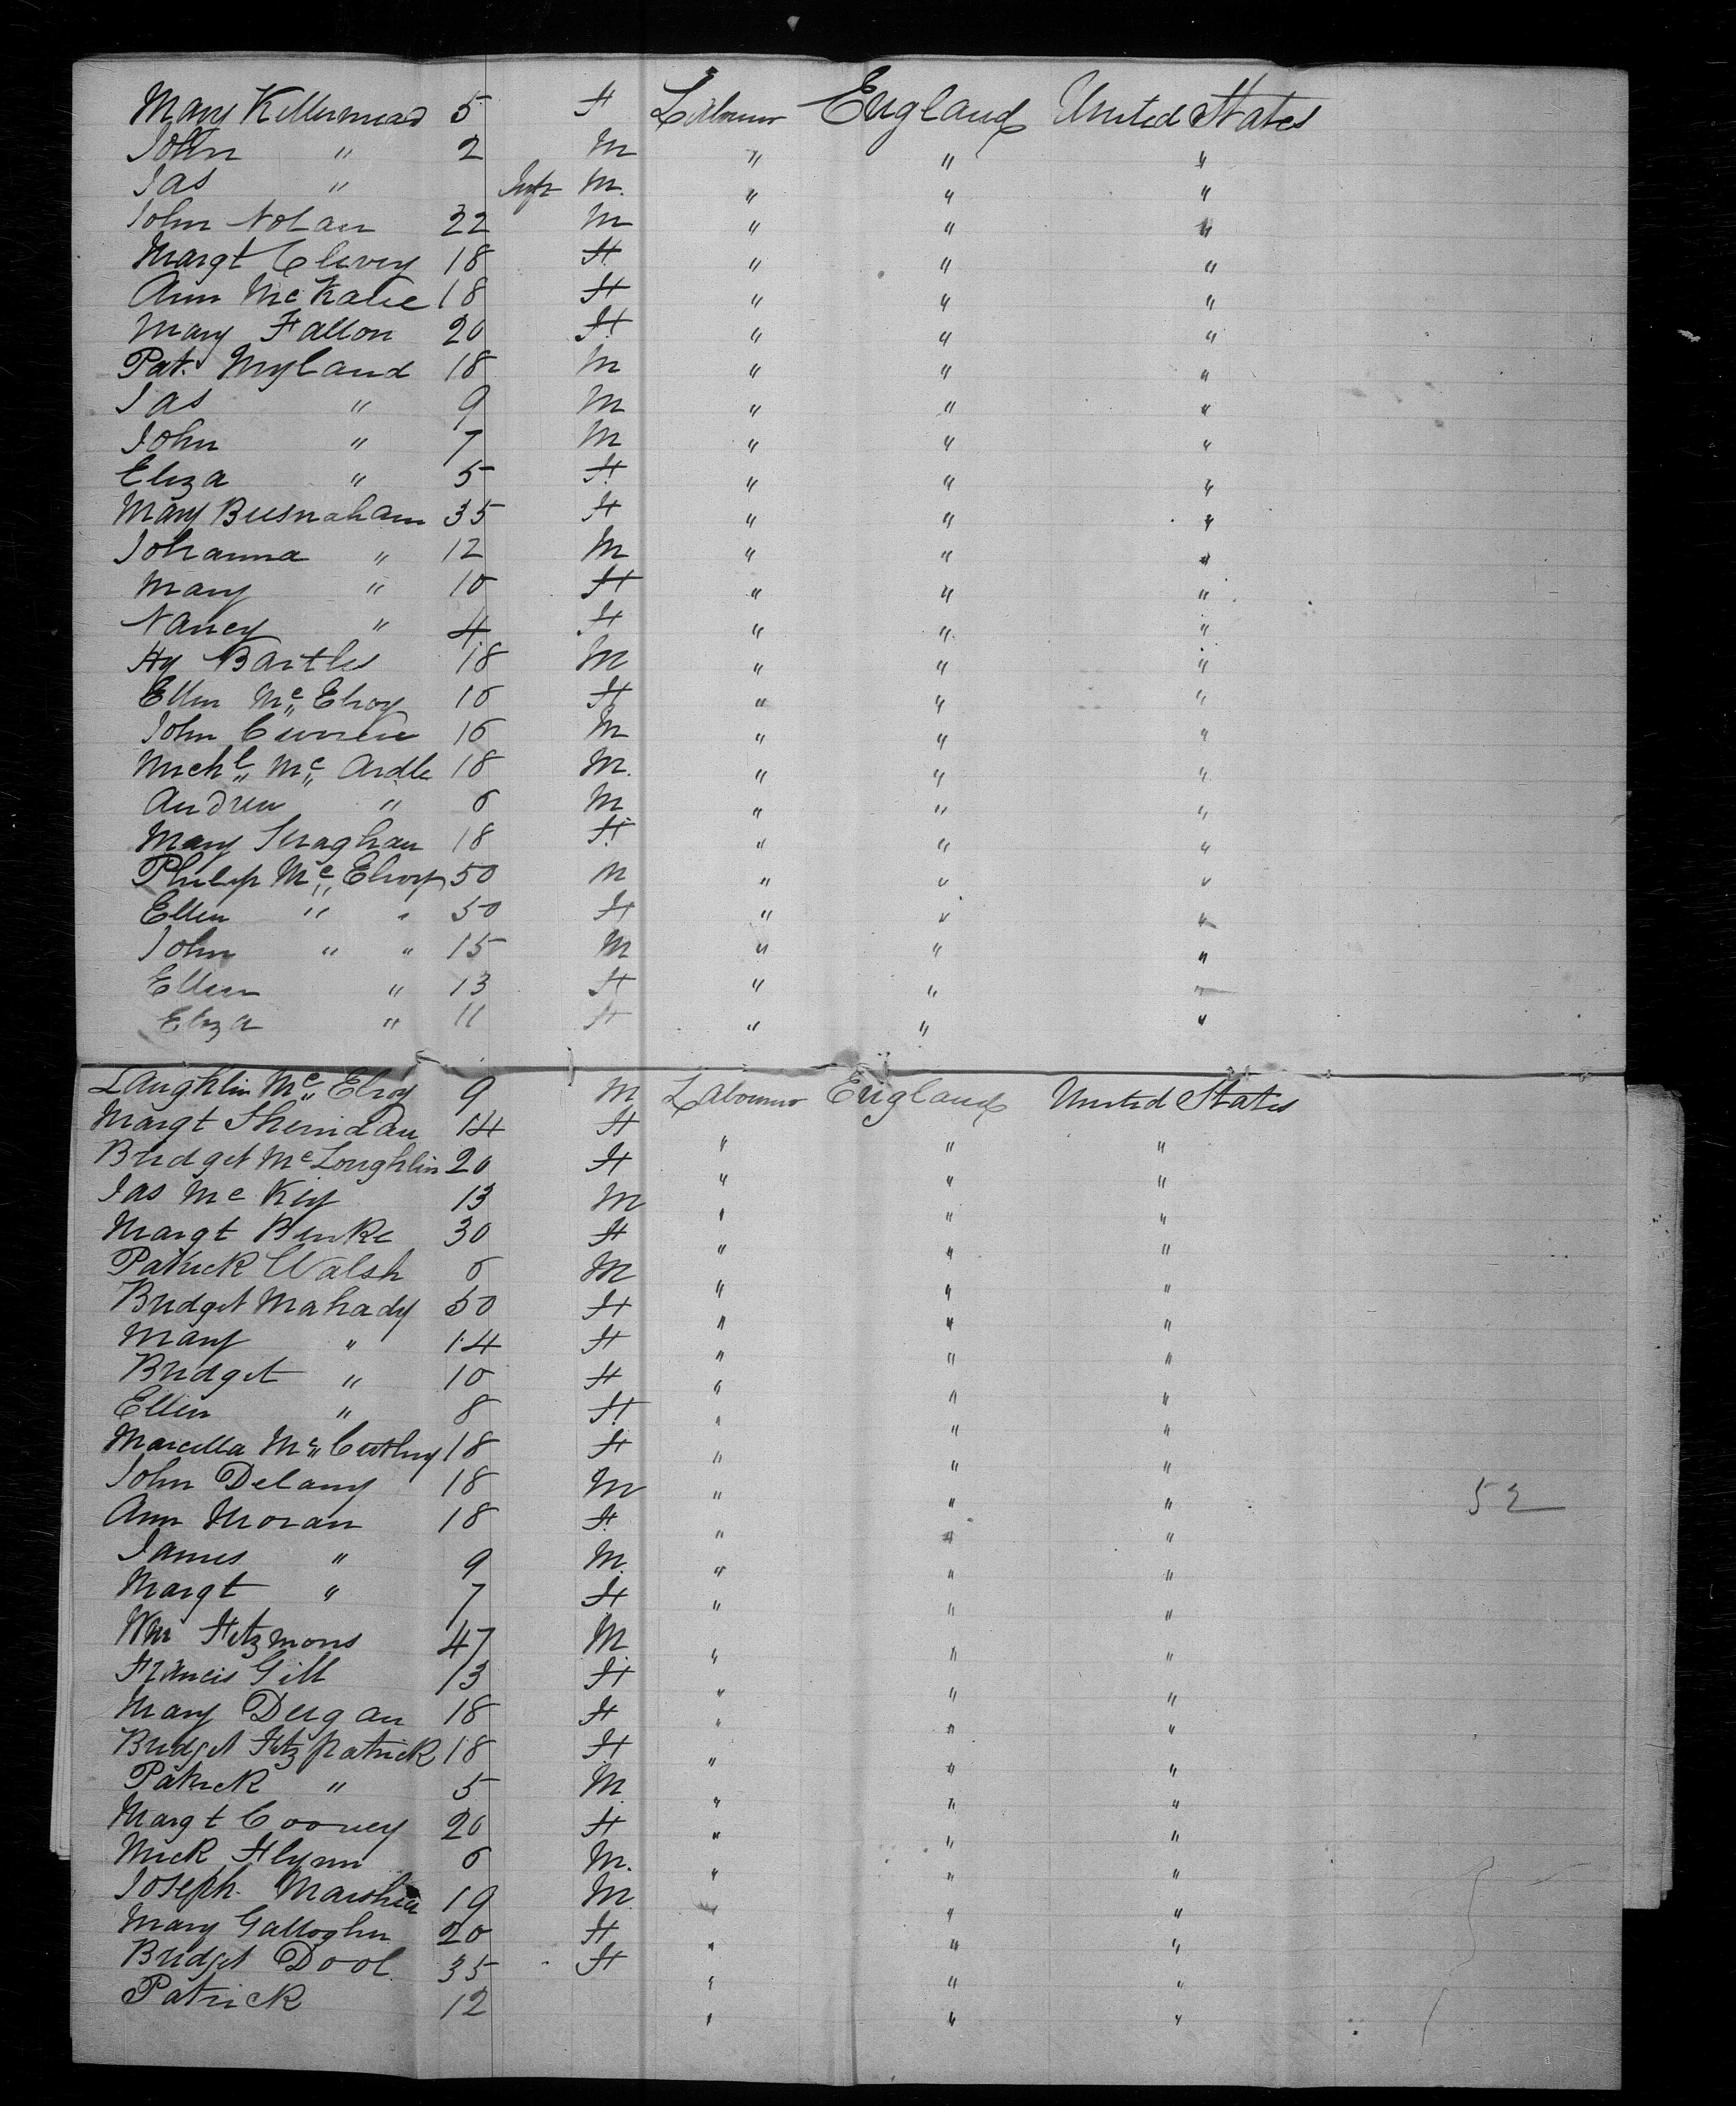 Mary 5 F Labourer England United States
John " 2 M " " "
Jas " Inft M. " " "
John Nolan 22 M " " "
Margt 18 F " " "
Ann 18 F " " "
Mary Fallon 20 F " " "
Pat. Myland 18 M " " "
Jas " 9 M " " "
John " 7 M " " "
Eliza " 5 F " " "
Mary Busnaham 35 F " " "
Johanna " 12 M " " "
Mary " 10 F " " "
Nancy " 4 F " " "
Hy Bartles 18 M " " "
Ellen Mc Elroy 10 F " " "
John 16 M " " "
Michl Mc Ardle 18 M. " " "
Andrew " 6 M " " "
Mary 18 F " " "
Philip Mc Elroy 50 M " " "
Ellen " " 50 F " " "
John " " 15 M " " "
Ellen " 13 F " " "
Eliza " 11 F " " "
Laughlin Mc Elroy 9 M Labourer England United States
Margt Sheridan 14 F " " "
Bridget Mc Loughlin 20 F " " "
Jas Mc Key 13 M " " "
Margt Burke 30 F " " "
Patrick Walsh 6 M " " "
Bridget Mahady 50 F " " "
Mary " 14 F " " "
Bridget " 10 F " " "
Ellen " 8 F " " "
Marcella Mc 18 F " " "
John Delany 18 M " " " 52
Ann Moran 18 F " " "
James " 9 M. " " "
Margt " 7 F " " "
Wm Fitzmons 47 M " " "
Francis Gill 13 F " " "
Mary Degan 18 F " " "
Bridget Fitzpatrick 18 F " " "
Patrick " 5 M. " " "
Margt Cooney 20 F " " "
Mick Flynn 6 M. " " "
Joseph 19 M " " "
Mary Galloghn 20 F " " "
Bridget Dool 35 F " " "
Patrick 12 " " "